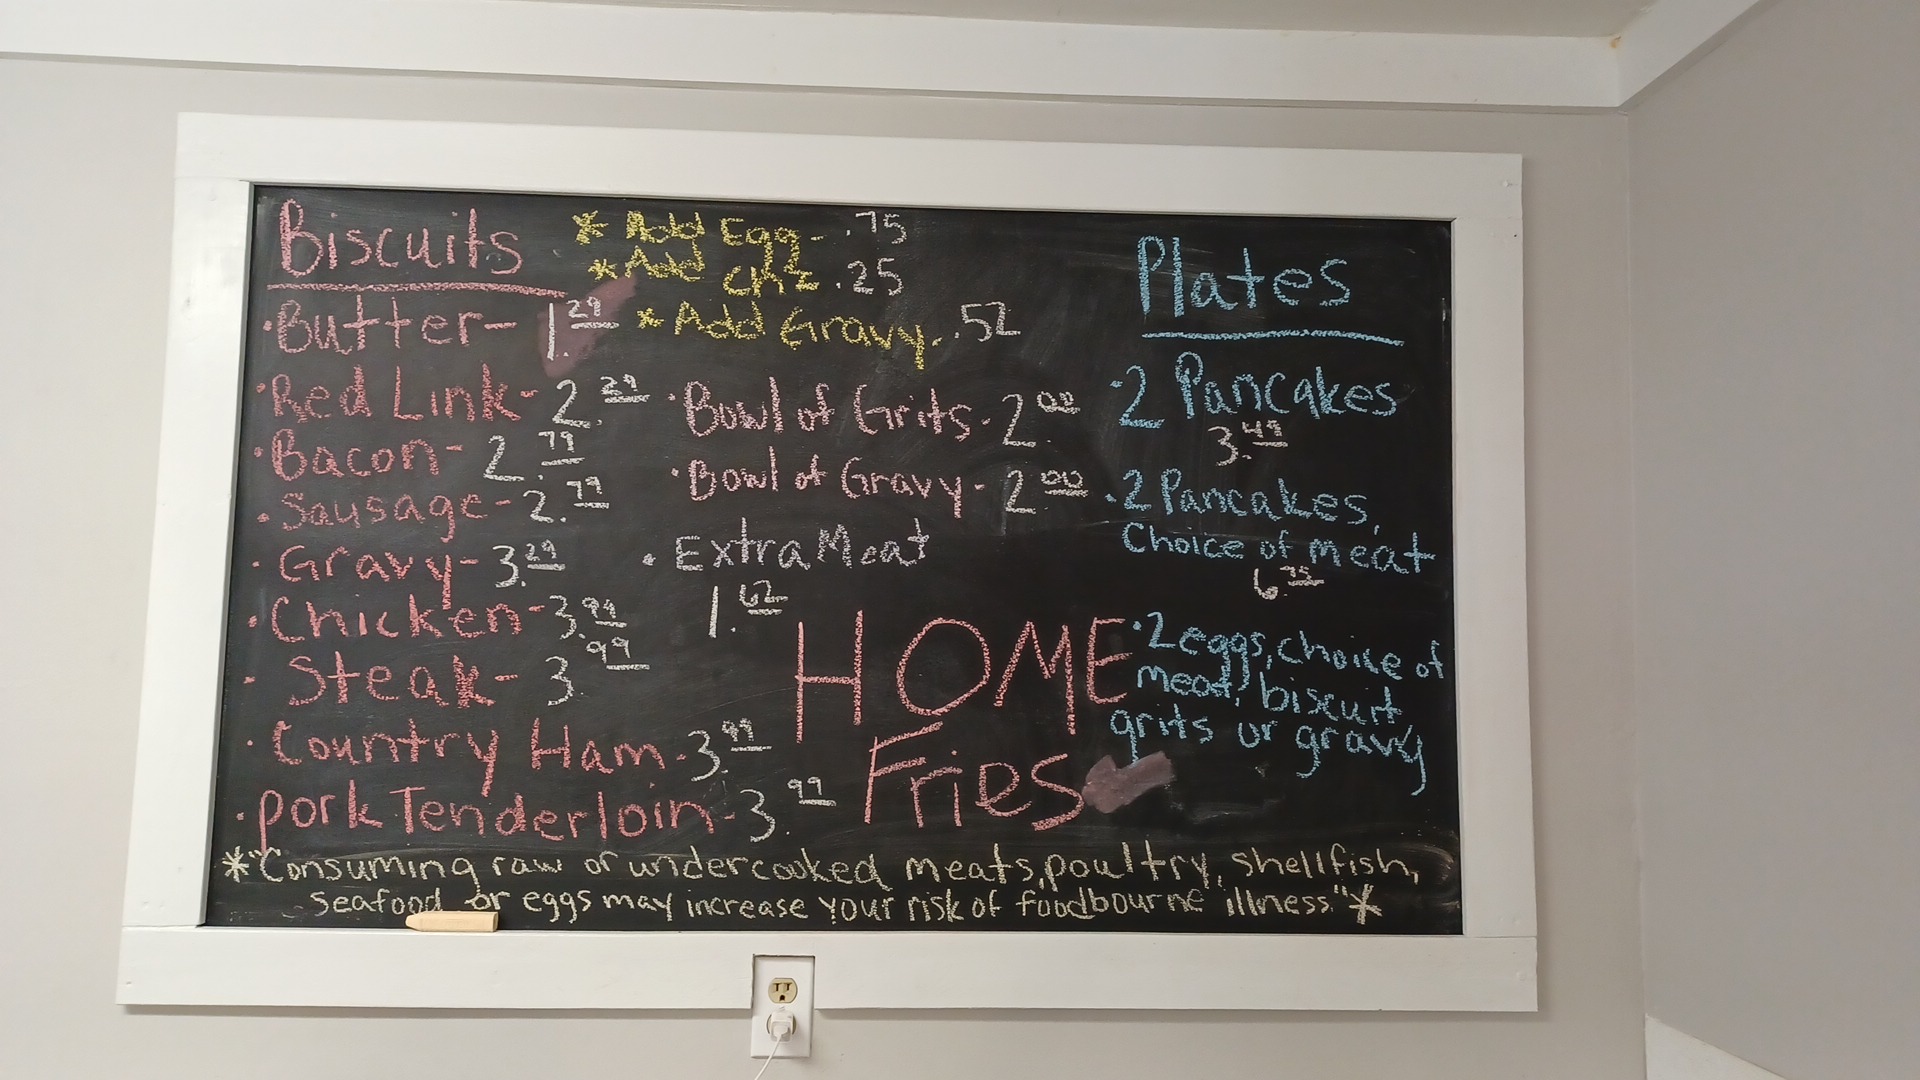 Biscuits
* Add Egg - .75
* Add Chz .25
* Add Gravy . .52
• Butter - 1.29
• Red Link - 2.29
• Bacon - 2.79
• Sausage - 2.79
• Gravy - 3.29
• Chicken - 3.99
• Steak - 3.99
• Country Ham - 3.99
• Pork Tenderloin - 3.99
• Bowl of Grits - 2.00
• Bowl of Gravy - 2.00
• Extra Meat
1.62
HOME
Fries
Plates
• 2 Pancakes
3.49
• 2 Pancakes,
Choice of meat
6.75
• 2 eggs, choice of
meat, biscuit
grits or gravy
*"Consuming raw or undercooked meats, poultry, shellfish,
seafood or eggs may increase your risk of foodbourne illness."*